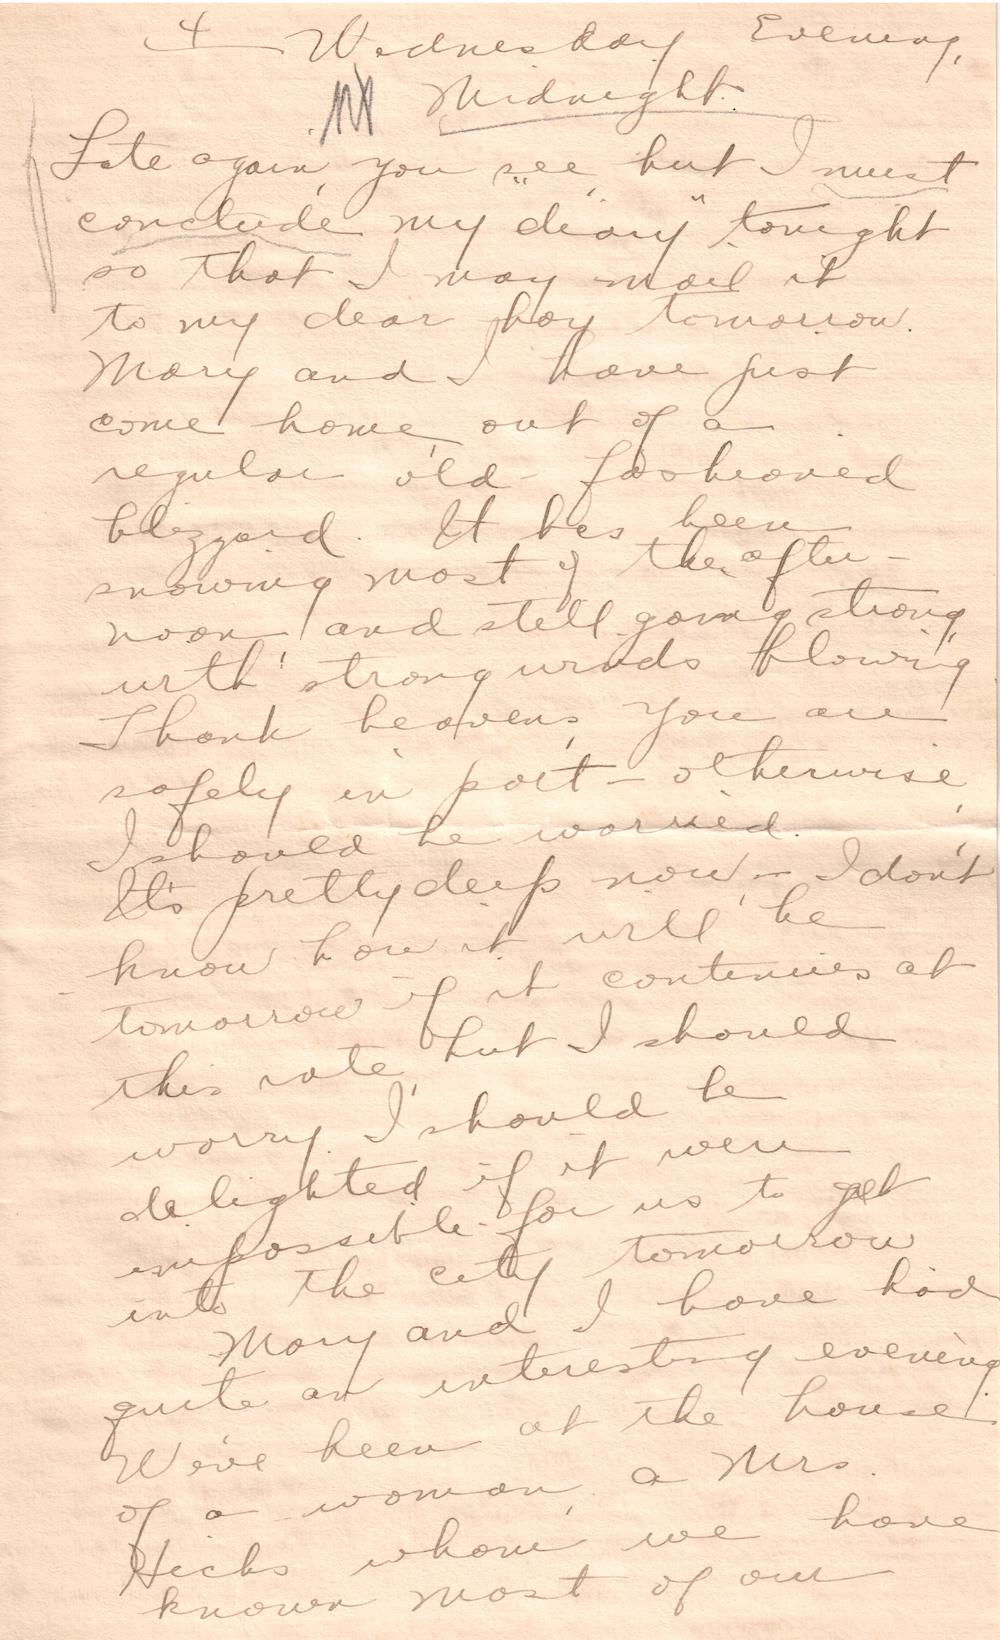 4 Wednesday Evening,
Midnight.
Late again, you see, but I must
conclude my "diary" tonight
so that I may mail it
to my dear boy tomorrow.
Mary and I have just
come home, out of a
regular old-fashioned
blizzard. It has been
snowing most of the after-
noon and still going strong,
with strong winds blowing
Thank heavens, you are
safely in port - otherwise,
I should be worried.
It's pretty deep now - I don't
know how it will be
tomorrow if it continues at
this rate, but I should
worry. I should be
delighted if it were
impossible for us to get
into the city tomorrow
Mary and I have had
quite an interesting evening.
We've been at the house
of a woman, a Mrs.
Hicks whom we have
known most of our